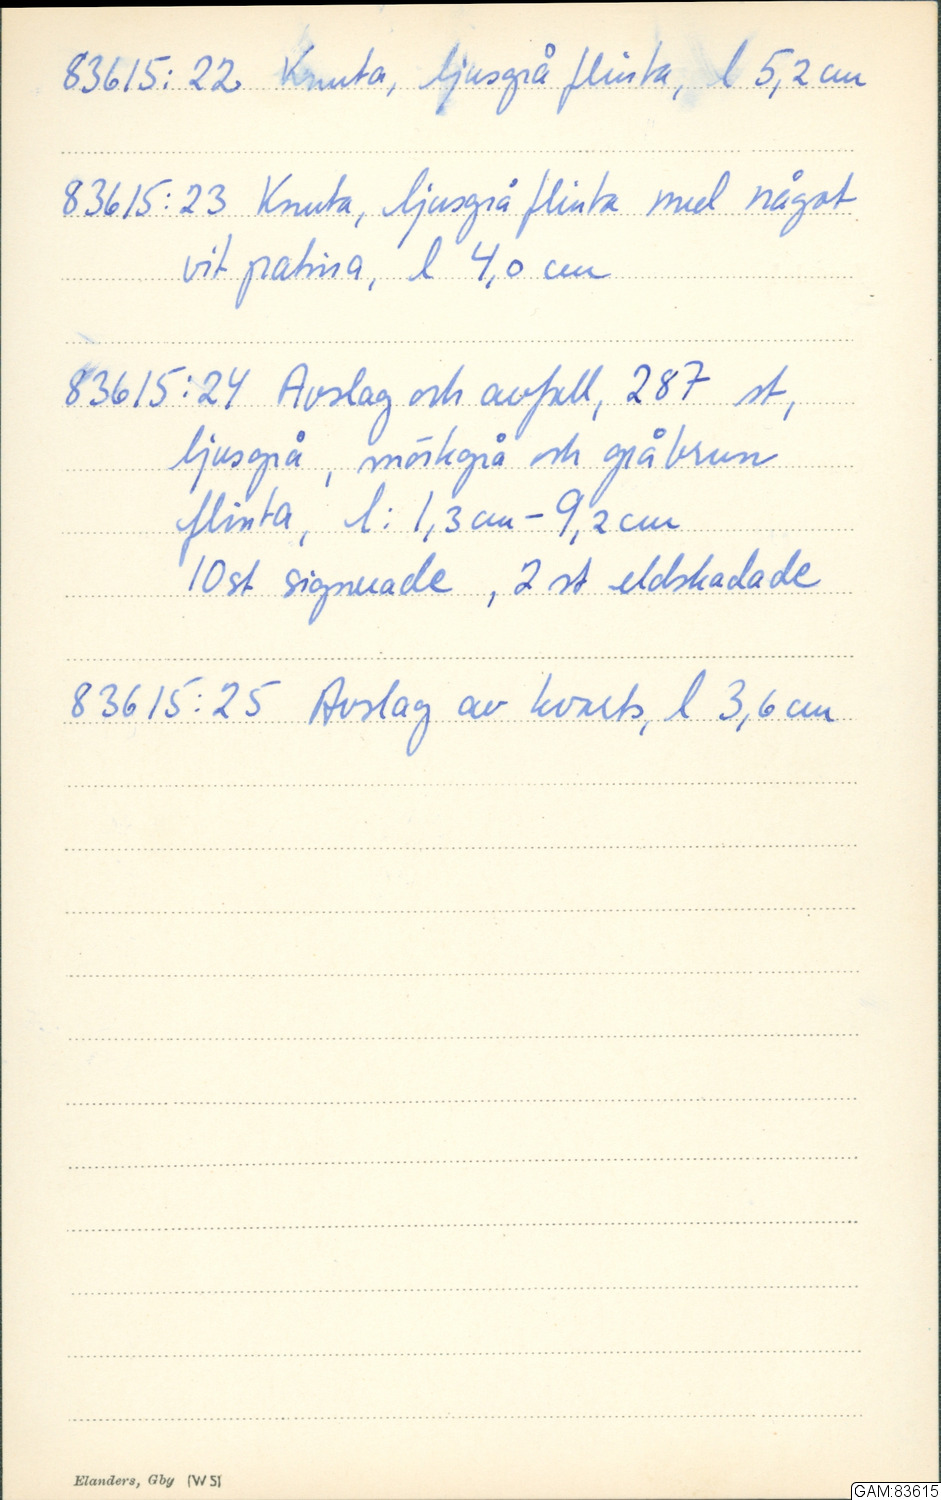 83615:22 Knuta, ljusgrå flinta, l 5,2 cm
83615:23 Knuta, ljusgrå flinta med något
vit patina, l 4,0 cm
83615:24 Avslag och avfall, 287 st,
ljusgrå, mörkgrå och gråbrun
flinta, l: 1,3 cm - 9,2 cm
10 st signerade, 2 st eldskadade
83615:25 Avslag av kvarts, l 3,6 cm
Elanders, Gby (WS)
GAM:83615